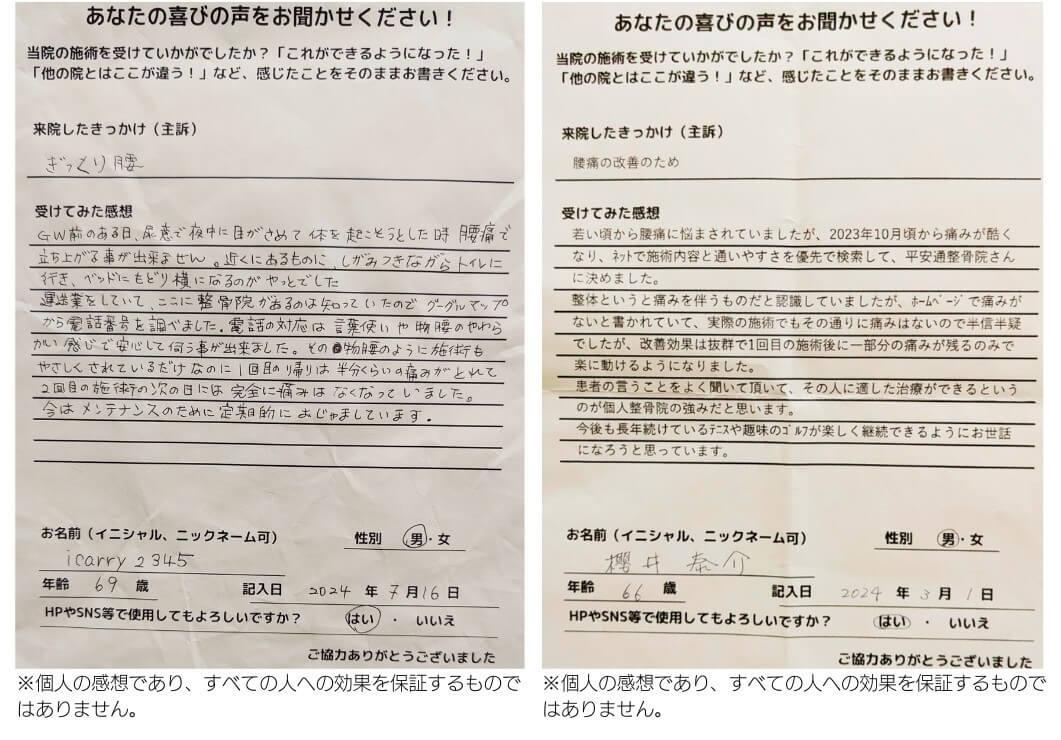 あなたの喜びの声をお聞かせください！
当院の施術を受けていかがでしたか？「これができるようになった！」
「他の院とはここが違う！」など、感じたことをそのままお書きください。
来院したきっかけ（主訴）
ぎっくり腰
受けてみた感想
GW前のある日、尿意で夜中に目がさめて体を起こそうとした時 腰痛で
立ち上がる事が出来ません。近くにあるものに、しがみつきながらトイレに
行き、ベッドにもどり横になるのがやっとでした
運送業をしていて、ここに整骨院があるのは知っていたのでグーグルマップ
から電話番号を調べました。電話の対応は言葉使いや物腰のやわら
かい感じで安心して伺う事が出来ました。その物腰のように施術も
やさしくされているだけなのに1回目の帰りは半分くらいの痛みがとれて
2回目の施術の次の日には完全に痛みはなくなっていました。
今はメンテナンスのために定期的におじゃましています.
お名前（イニシャル、ニックネーム可）
性別 男・女
icarry2345
年齢 69 歳 記入日 2024 年 7月16日
HPやSNS等で使用してもよろしいですか？ はい ・ いいえ
ご協力ありがとうございました
※個人の感想であり、すべての人への効果を保証するもので
はありません。
あなたの喜びの声をお聞かせください！
当院の施術を受けていかがでしたか？「これができるようになった！」
「他の院とはここが違う！」など、感じたことをそのままお書きください。
来院したきっかけ（主訴）
腰痛の改善のため
受けてみた感想
若い頃から腰痛に悩まされていましたが、2023年10月頃から痛みが酷く
なり、ﾈｯﾄで施術内容と通いやすさを優先で検索して、平安通整骨院さん
に決めました。
整体というと痛みを伴うものだと認識していましたが、ﾎｰﾑﾍﾟｰｼﾞで痛みが
ないと書かれていて、実際の施術でもその通りに痛みはないので半信半疑
でしたが、改善効果は抜群で1回目の施術後に一部分の痛みが残るのみで
楽に動けるようになりました。
患者の言うことをよく聞いて頂いて、その人に適した治療ができるという
のが個人整骨院の強みだと思います。
今後も長年続けているﾃﾆｽや趣味のｺﾞﾙﾌが楽しく継続できるようにお世話
になろうと思っています。
お名前（イニシャル、ニックネーム可）
性別 男・女
櫻井 泰介
年齢 66 歳 記入日 2024 年 3月 1日
HPやSNS等で使用してもよろしいですか？ はい ・ いいえ
ご協力ありがとうございました
※個人の感想であり、すべての人への効果を保証するもので
はありません。